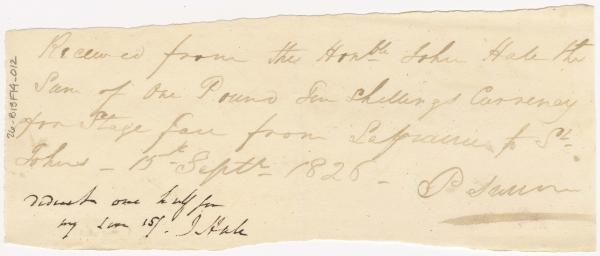 Received from the Honble John Hale the
Sum of One Pound Ten Shellings Currency
for Stage fare from Laprairie to St.
Johns — 15th Septr. 1826 —
deduct one half for
my son 15/. J Hale
26-B15F14-012